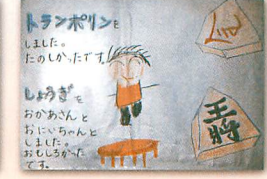 トランポリンを
しました。
たのしかったです。
しょうぎを
おかあさんと
おにいちゃんと
しました。
おもしろかった
です。
王将